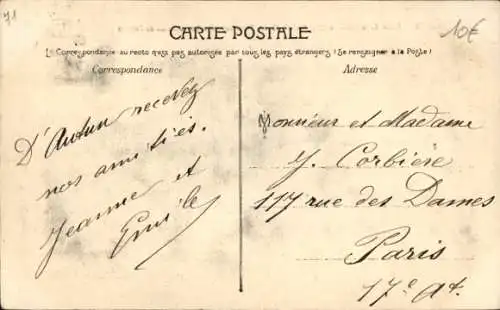 71
10€
CARTE POSTALE
La Correspondance au recto n'est pas autorisée par tous les pays étrangers (Se renseigner à la Poste)
Correspondance
D'Autun recevez
nos amitiés.
Jeanne et
Emile
Adresse
Monsieur et Madame
J. Corbière
117 rue des Dames
Paris
17e At.